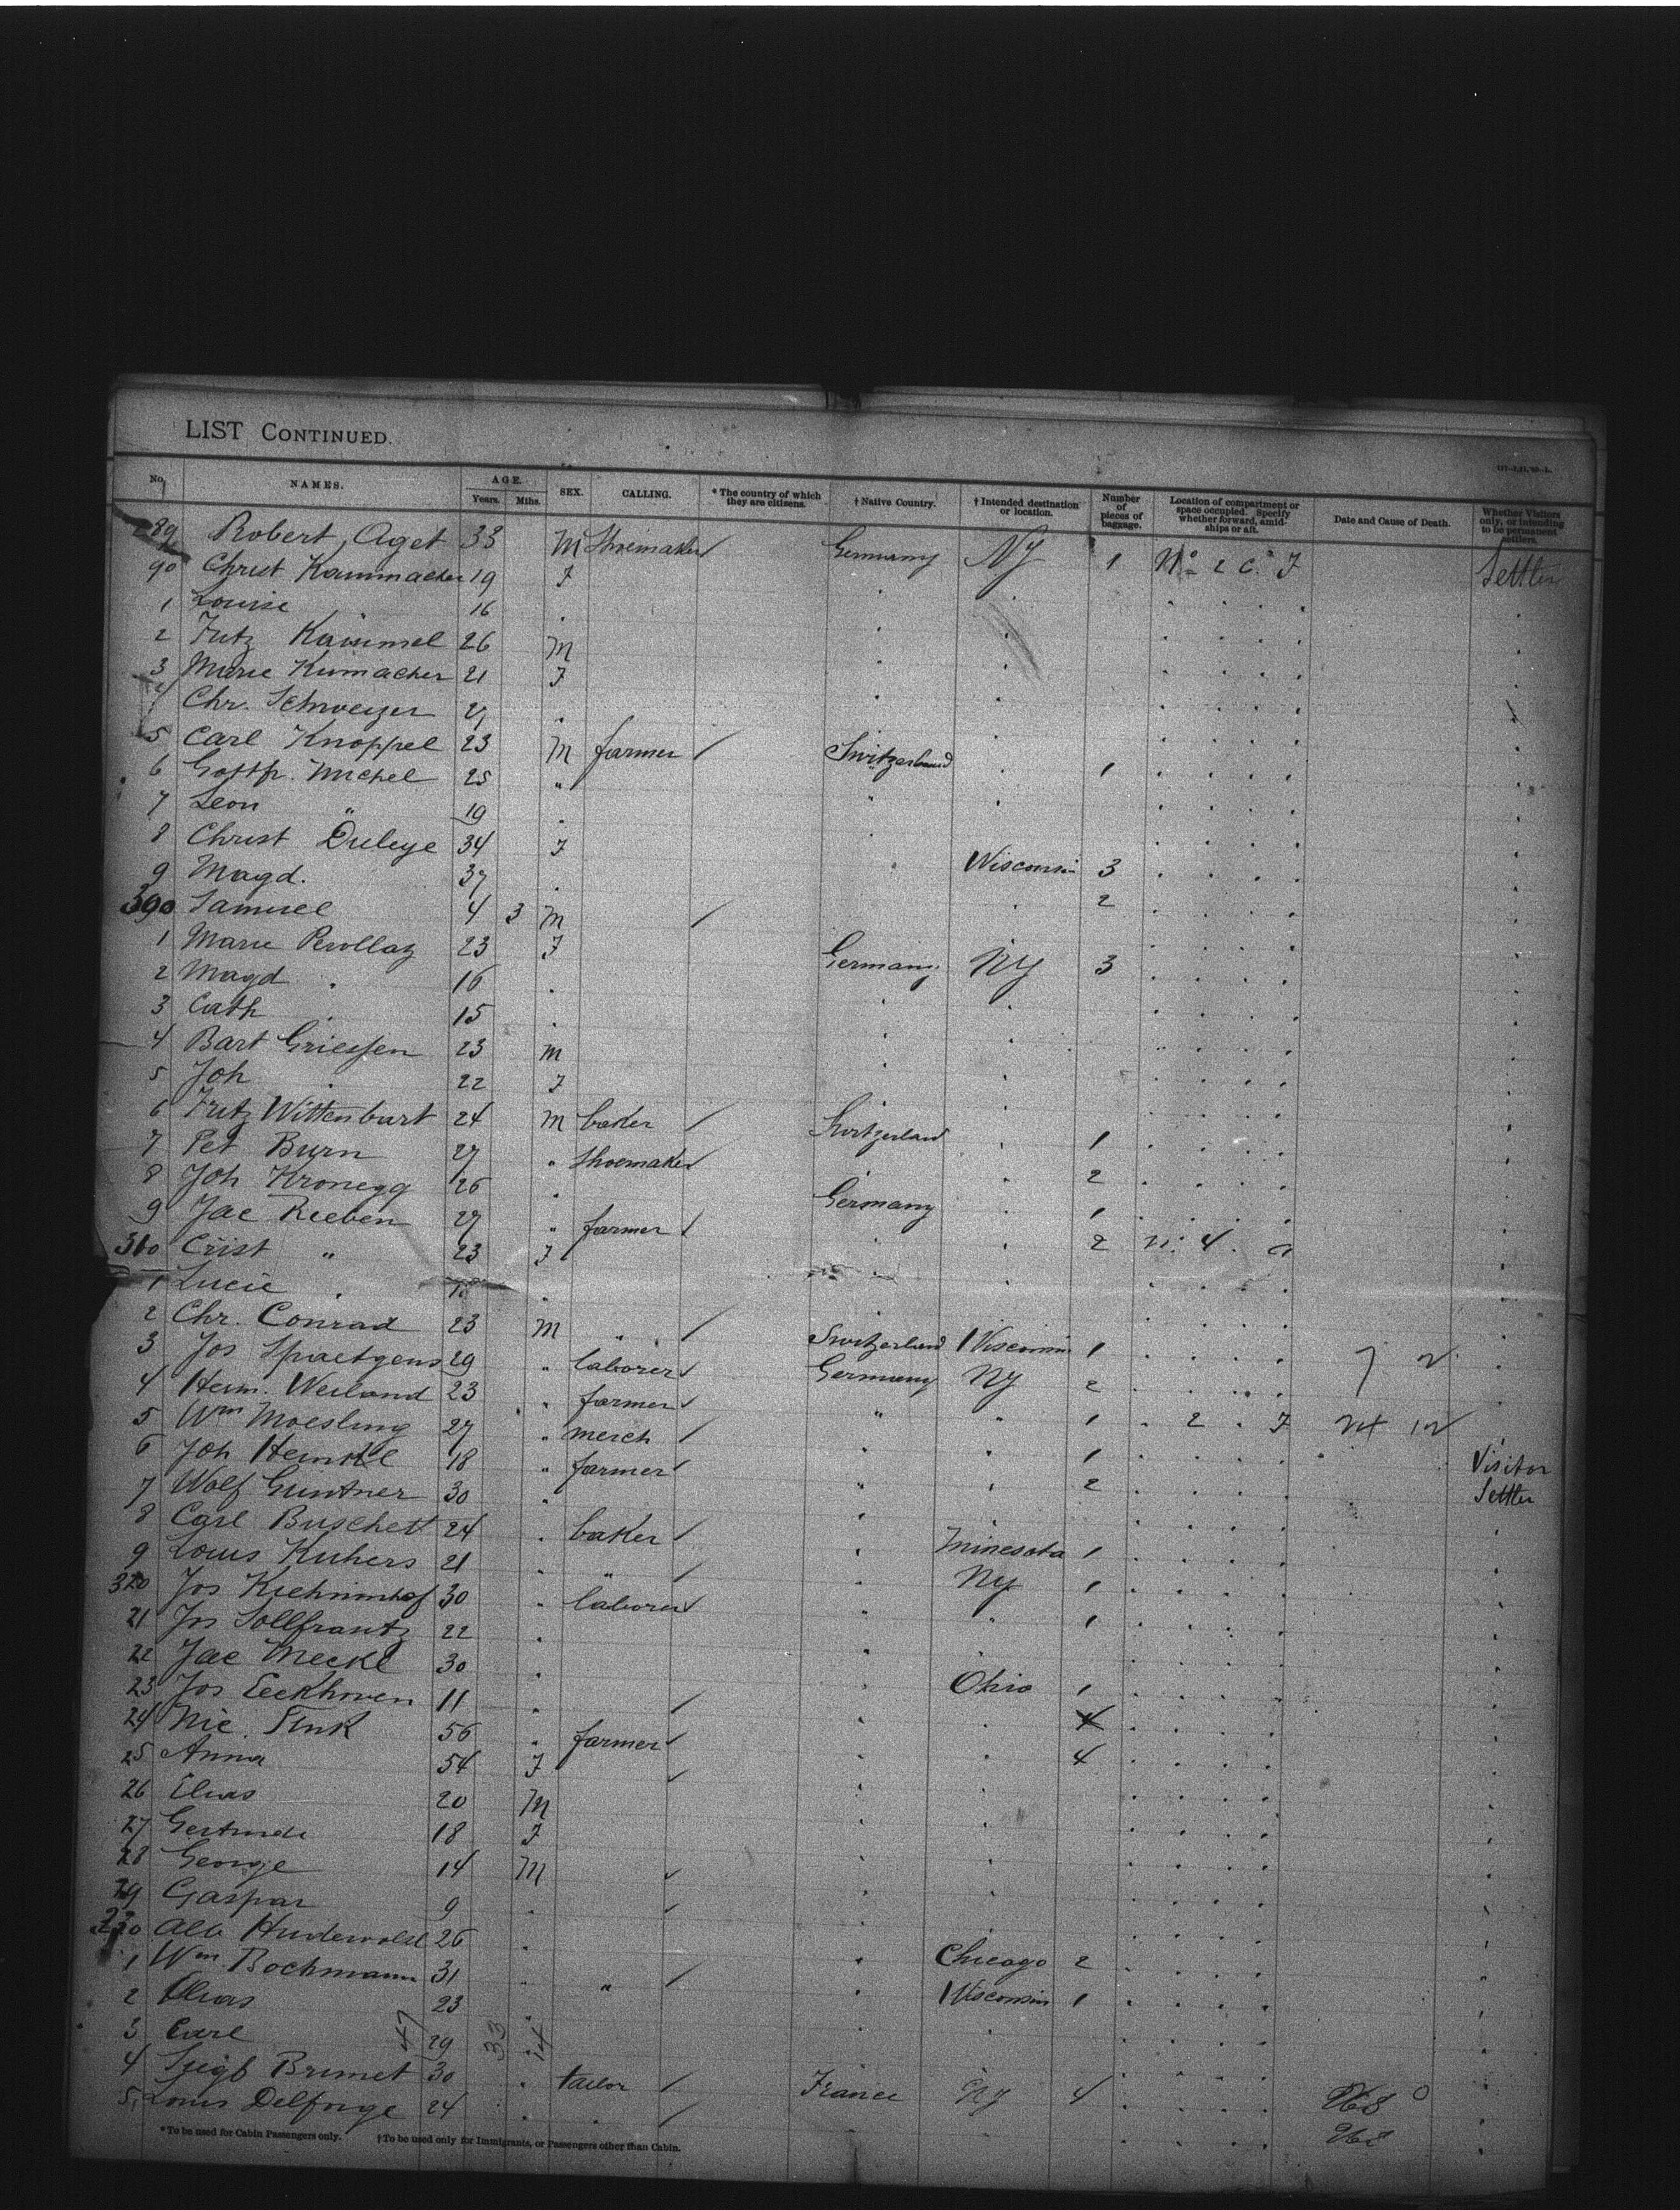 LIST CONTINUED.
No. NAMES. AGE. Years. Mths. SEX. CALLING. * The country of which they are citizens. † Native Country. † Intended destination or location. Number of pieces of baggage. Location of compartment or space occupied. Specify whether forward, amidships or aft. Date and Cause of Death. Whether Visitors only, or intending to be permanent settlers.
289 Robert Aget 33 M Shoemaker / Germany NY 1 No 2 C. F Settler
90 Christ Kammacher 19 F
1 Louise 16 .
2 Fritz Kammel 26 M
3 Marie Kumacher 21 F
4 Chr. Schweizer .
5 Carl Knoppel 23 M farmer / Switzerland . 1
6 Gottfr. Michel 25 "
7 Leon " 19 .
8 Christ Duleye 34 F Wisconsin 3
9 Magd. 37 . . 2
300 Samuel 4 3 M /
1 Marie Perollaz 23 F Germany NY 3
2 Magd . 16 .
3 Cath . 15 .
4 Bart Griessen 23 M
5 Joh . 22 F
6 Fritz Wittenburt 24 M baker / Switzerland . 1
7 Pet Burn 27 " Shoemaker / . 2
8 Joh Kronegg 26 . Germany . 1
9 Jac Reeben 27 " farmer / . . 2 N: 4 . a
310 Crist " 23 F
1 Lucie . 18 .
2 Chr. Conrad 23 M " / Switzerland Wisconsin 1
3 Jos Spaetgens 29 " laborer / Germany NY 2
4 Herm. Weiland 23 " farmer / " " 1 . 2 . F
5 Wm Moesling 27 " merch / . . 1 Visitor
6 Joh Heinkel 18 " farmer / . . 2 Settler
7 Wolf Guntner 30 .
8 Carl Buschett 24 . baker / . Minesota 1
9 Louis Kuhers 21 . " / . NY 1
320 Jos Kiehnimhof 30 . laborer / . . 1
21 Jos Sollfrantz 22 .
22 Jac Meckl 30 . Ohio 1
23 Jos Eeckhoven 11 . /
24 Nic. Fink 56 . farmer / . . 4
25 Anna 54 F /
26 Elias 20 M
27 Gertrude 18 F
28 George 14 M /
29 Gaspar 9 . /
330 Alb Hudewald 26 . . Chicago 2
1 Wm Bochmann 31 . " / . Wisconsin 1
2 Elias 23 .
3 Carl 47 29 33 14
4 Siegb Brumet 30 . tailor / France NY 4
5 Louis Delforge 24 . . /
* To be used for Cabin Passengers only. † To be used only for Immigrants, or Passengers other than Cabin.